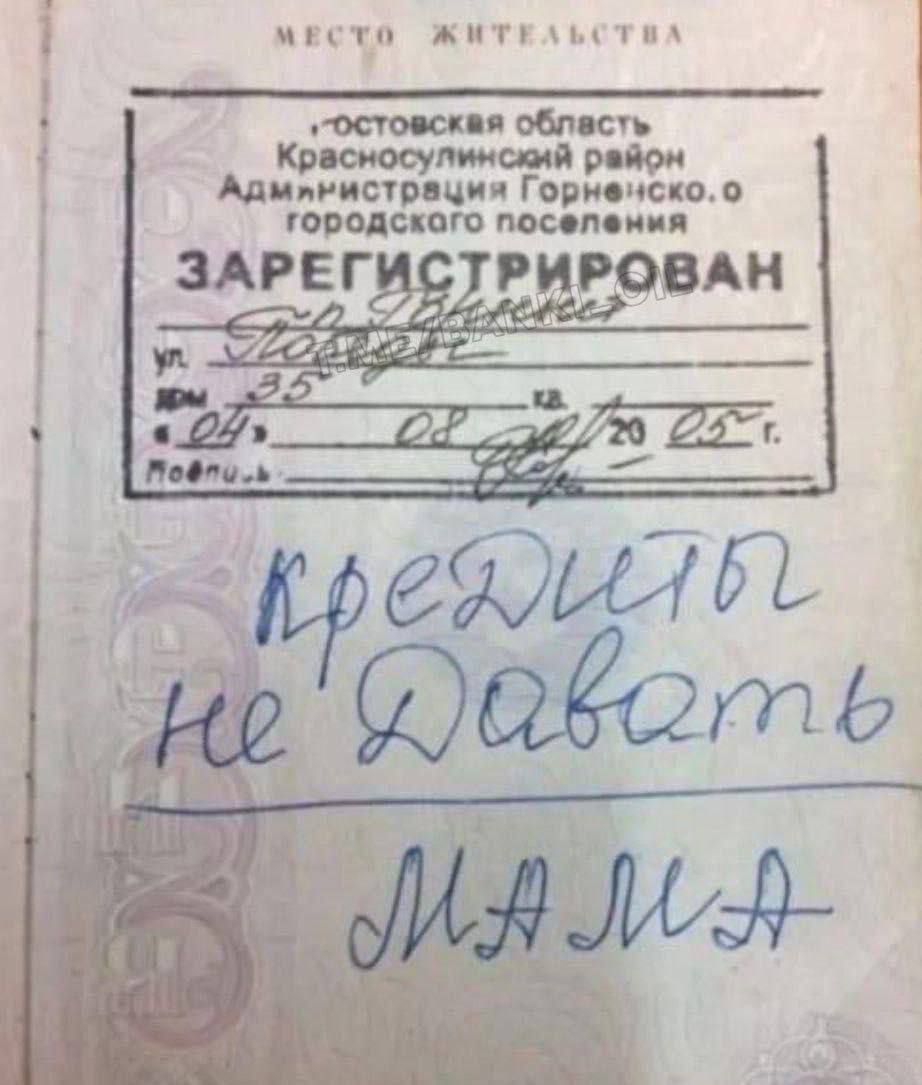 МЕСТО ЖИТЕЛЬСТВА
Ростовская область
Красносулинский район
Администрация Горненского
городского поселения
ЗАРЕГИСТРИРОВАН
п.
T.ME/BANKI_OIL
ул.
дом 35 кв.
« 04 » 08 20 05 г.
Подпись
кредиты
не давать
МАМА